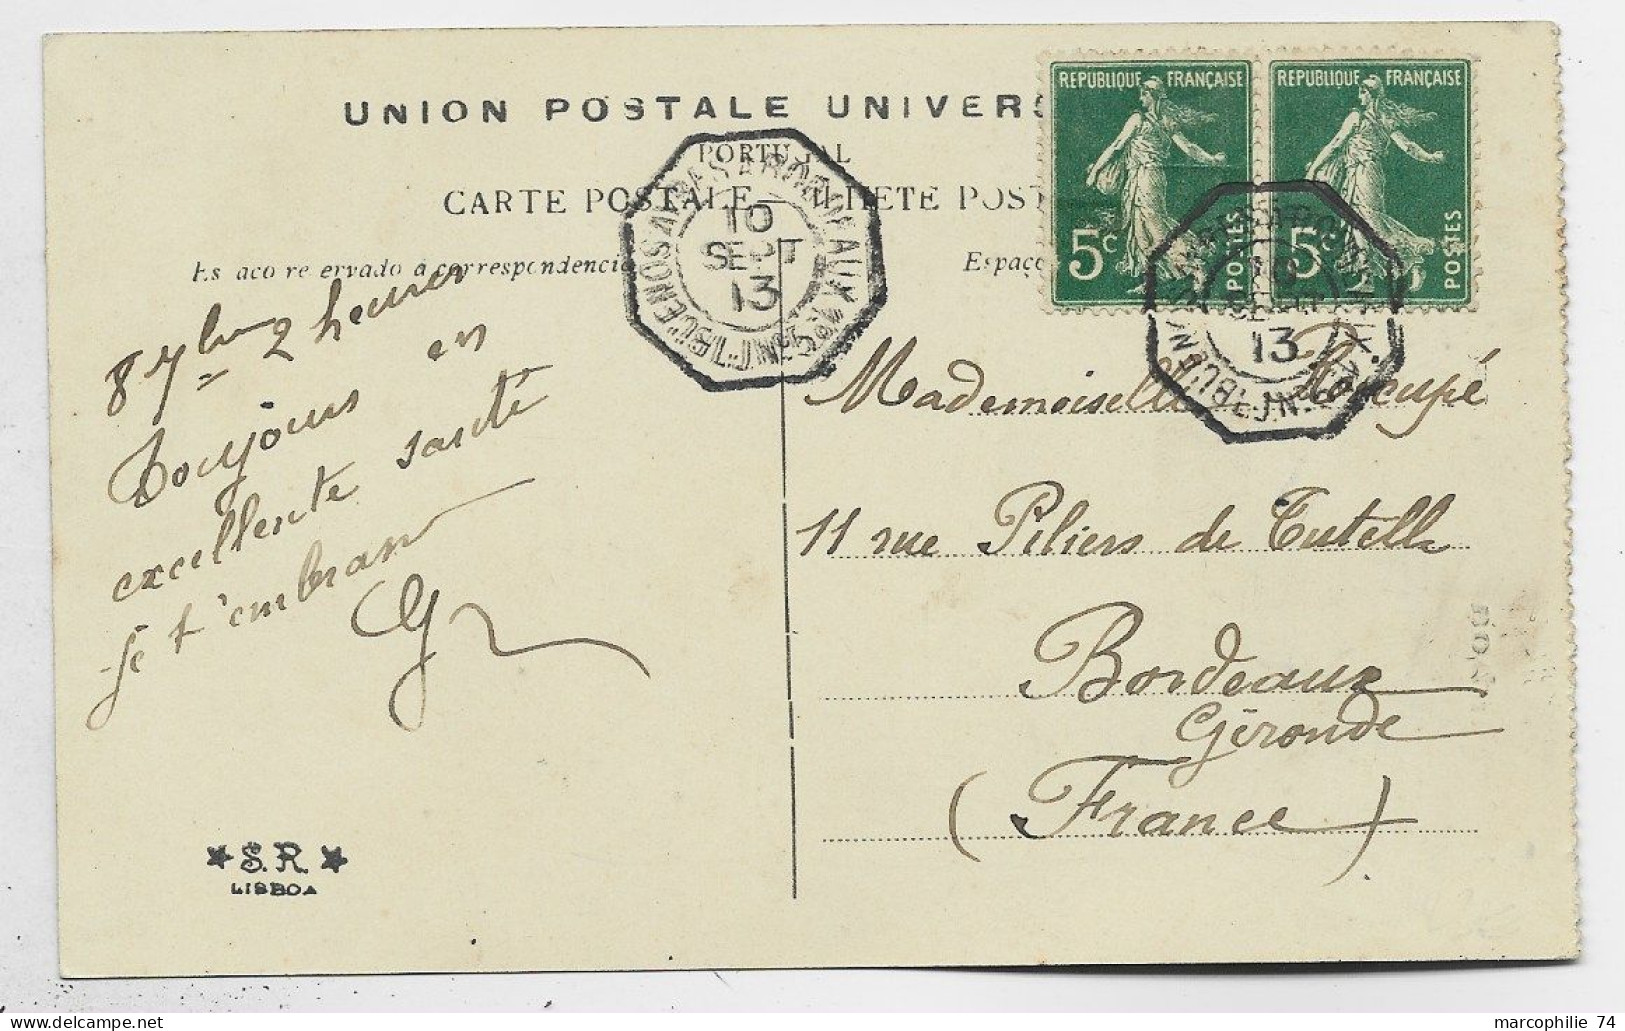 UNION POSTALE UNIVERS
PORTUGAL
CARTE POSTALE — BILHETE POST
Espaco reservado á correspondencia
Espaço
REPUBLIQUE FRANÇAISE
5c
POSTES
REPUBLIQUE FRANÇAISE
5c
POSTES
BUENOS AYRES A BORDEAUX
10
SEPT
13
10
SEPT
13
8 7bre 2 heures
Toujours en
excellente santé
je t'embrasse
Mademoiselle
11 rue Piliers de Tutelle
Bordeaux
Gironde
(France)
★ S.R. ★
LISBOA
marcophilie 74